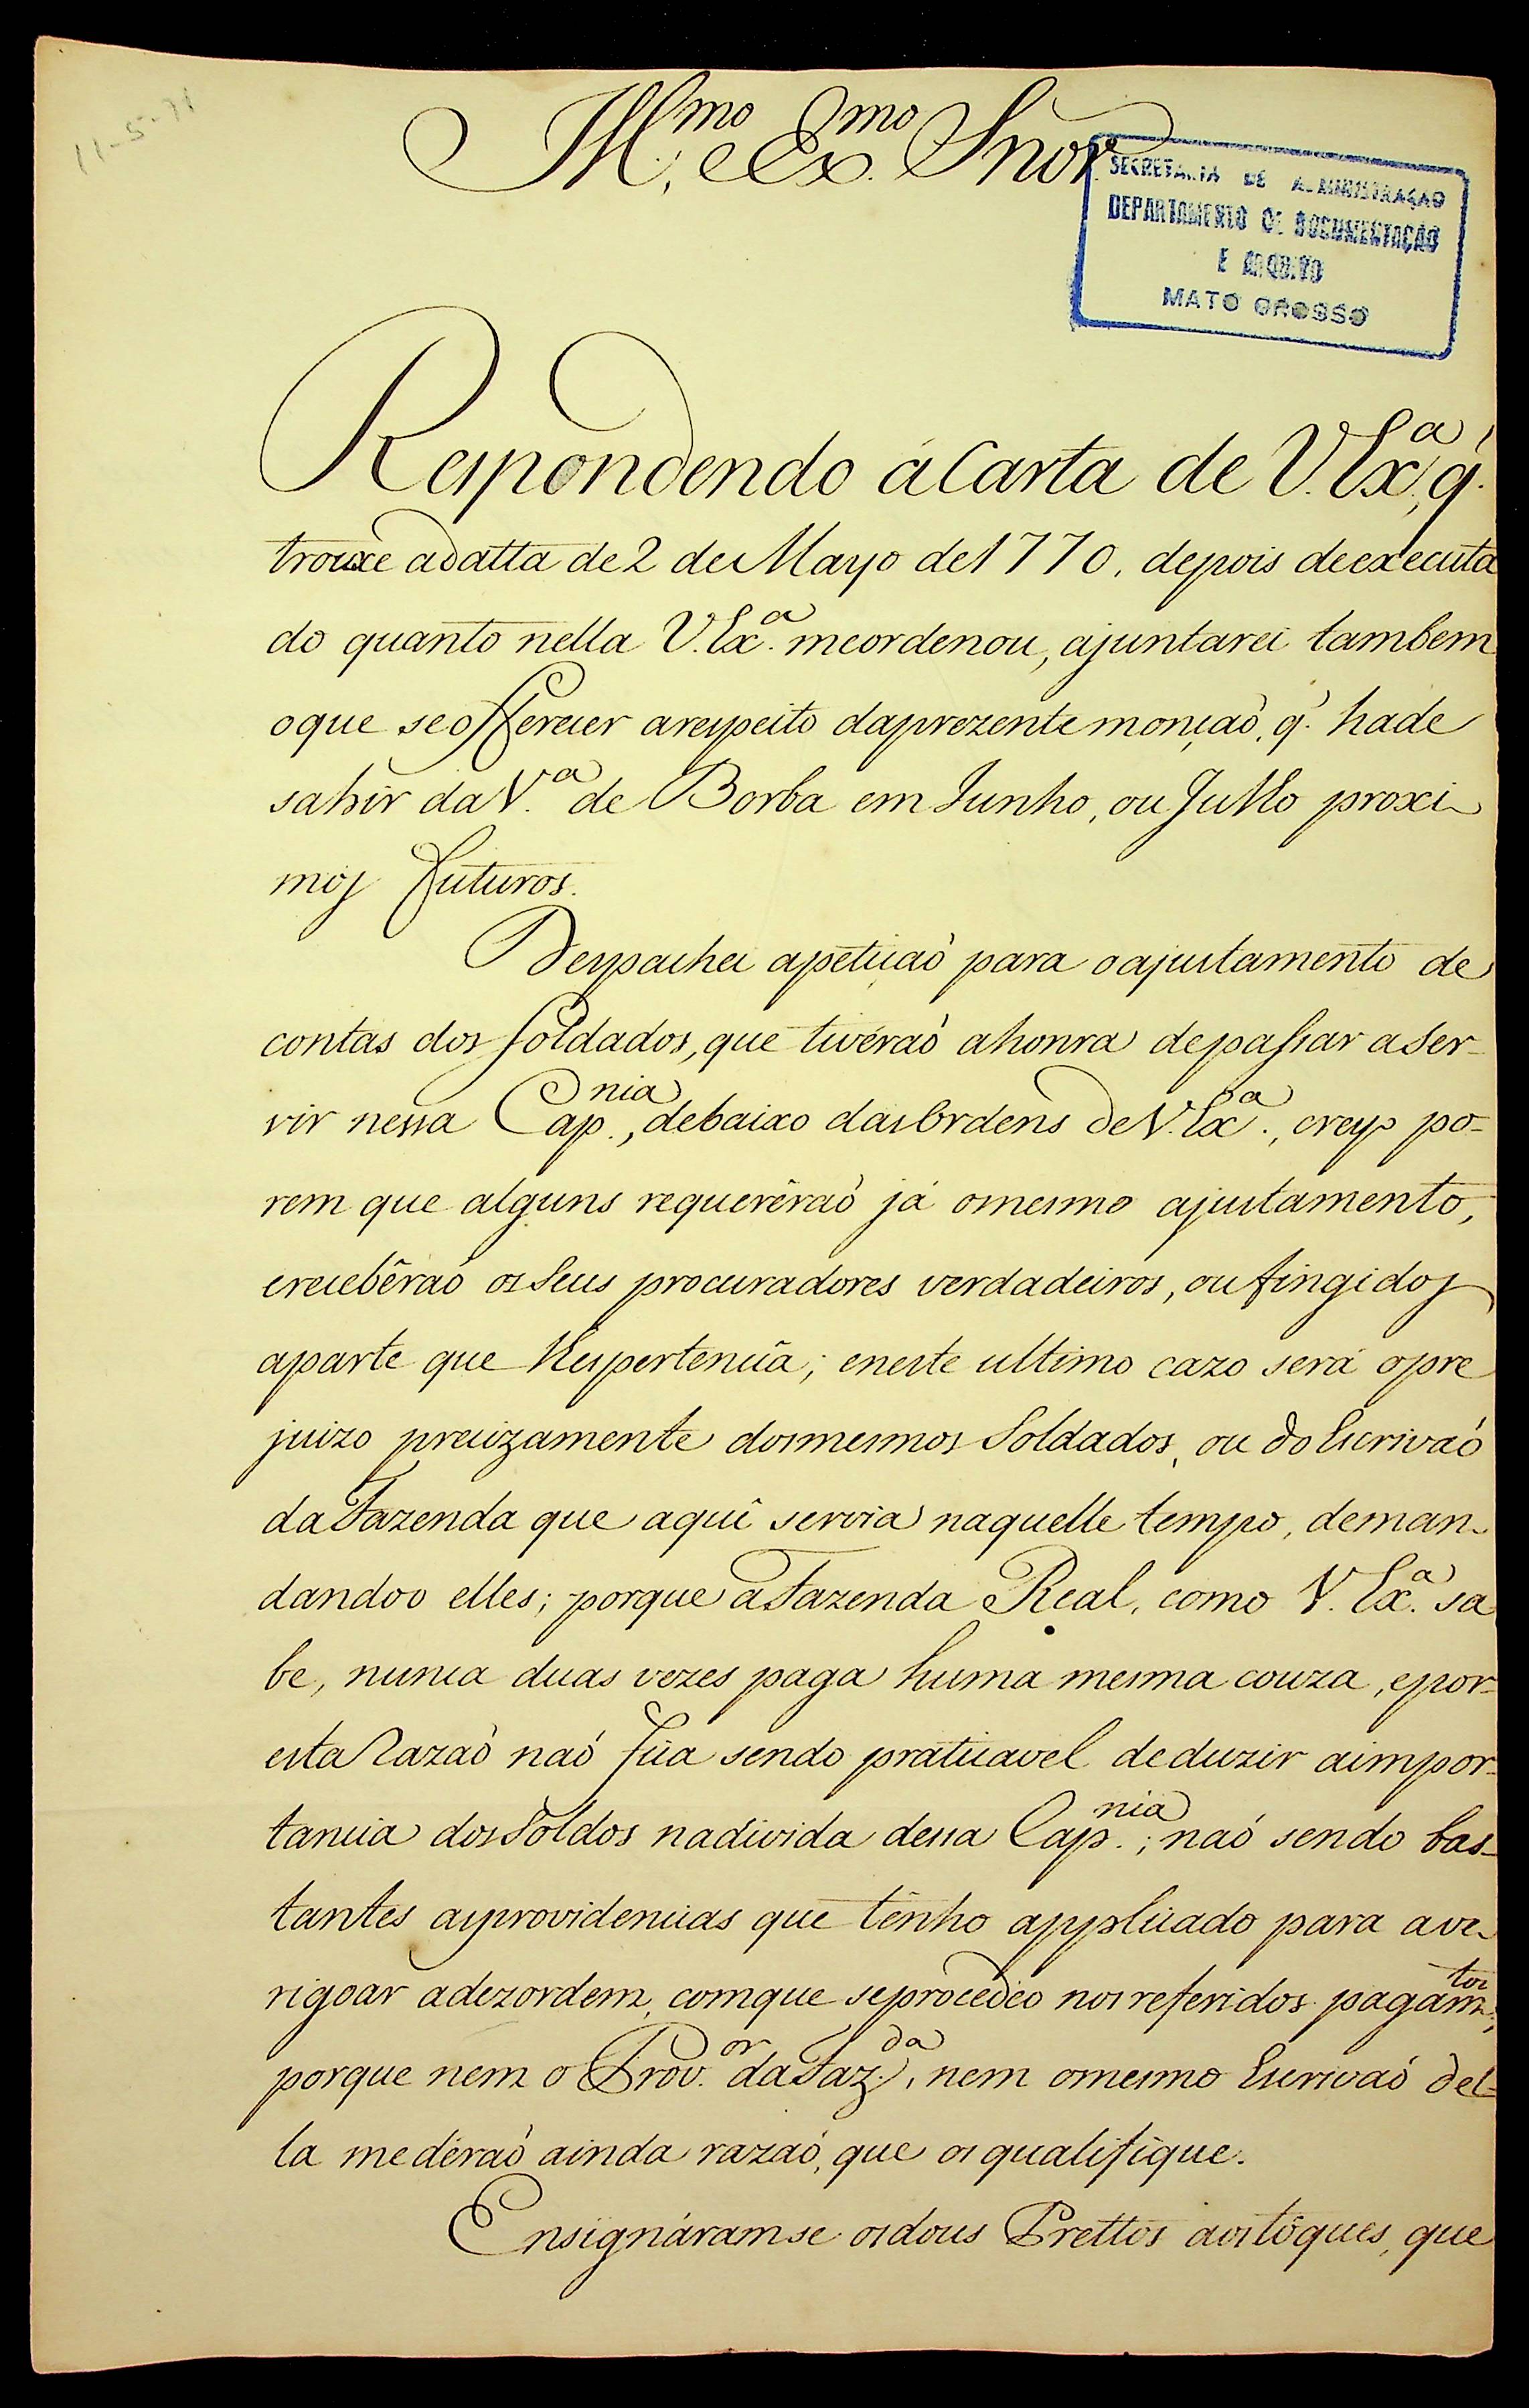 11-5-71
Ill.mo e Ex.mo Snor
SECRETARIA DE ADMINISTRAÇÃO
DEPARTAMENTO DE DOCUMENTAÇÃO
E ARQUIVO
MATO GROSSO
Respondendo á Carta de V. Ex.a, q.
trouxe adatta de 2 de Mayo de 1770, depois deexecuta
do quanto nella V. Ex.a meordenou, ajuntarei tambem
oque seofferecer arespeito daprezente monçaõ, q. hade
sahir da V.a de Borba em Junho, ou Julho proxi-
mos futuros.
Despachei apetiçaõ para oajustamento de
contas dos soldados, que tivéraõ ahonra depassar aSer-
vir nessa Cap.nia, debaixo dasOrdens deV. Ex.a, creyo po-
rem que alguns requerêraõ já omesmo ajustamento,
erecebêraõ osSeus procuradores verdadeiros, oufingidos
aparte que lhespertencîa; eneste ultimo cazo será opre
juizo precizamente dosmesmos Soldados, ou do Escrivaõ
daFazenda que aquî servia naquelle tempo, deman-
dandoo elles; porque aFazenda Real, como V. Ex.a sa
be, nunca duas vezes paga huma mesma couza, epor-
esta Razaõ naõ fica sendo praticavel deduzir aimpor-
tancia dosSoldos nadivida dessa Cap.nia; naõ sendo bas-
tantes asprovidencias que tênho applicado para ave-
rigoar adezordem, comque seprocedêo nosreferidos pagam.tos,
porque nem o Prov.or daFaz.da, nem omesmo Escrivaõ del-
la medéraõ ainda razaõ, que osqualifique.
Ensignáramse osdous Prettos aostóques, que